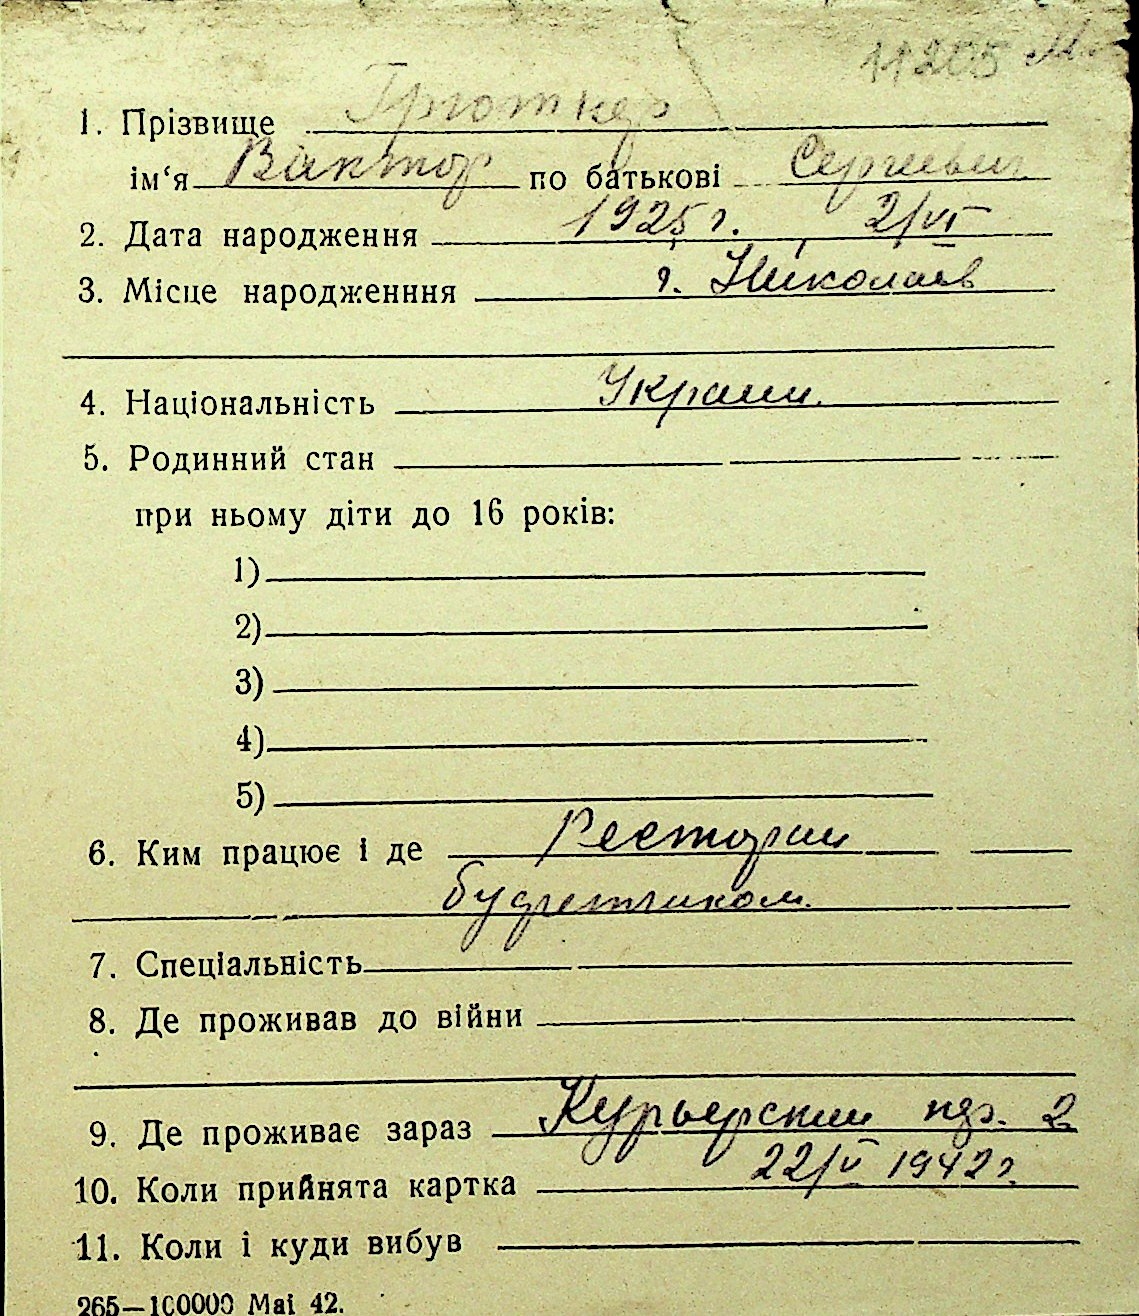 11205
1. Прізвище Гроткер
ім‘я Віктор по батькові Сергиевич
2. Дата народження 1925 г. 2/VI
3. Місце народженння г. Николаев
4. Національність Украин.
5. Родинний стан
при ньому діти до 16 років:
1)
2)
3)
4)
5)
6. Ким працює і де Ресторан
буфетчиком.
7. Спеціальність
8. Де проживав до війни
9. Де проживає зараз Курьерский 2
10. Коли прийнята картка 22/V 1942 г.
11. Коли і куди вибув
265—100000 Mai 42.